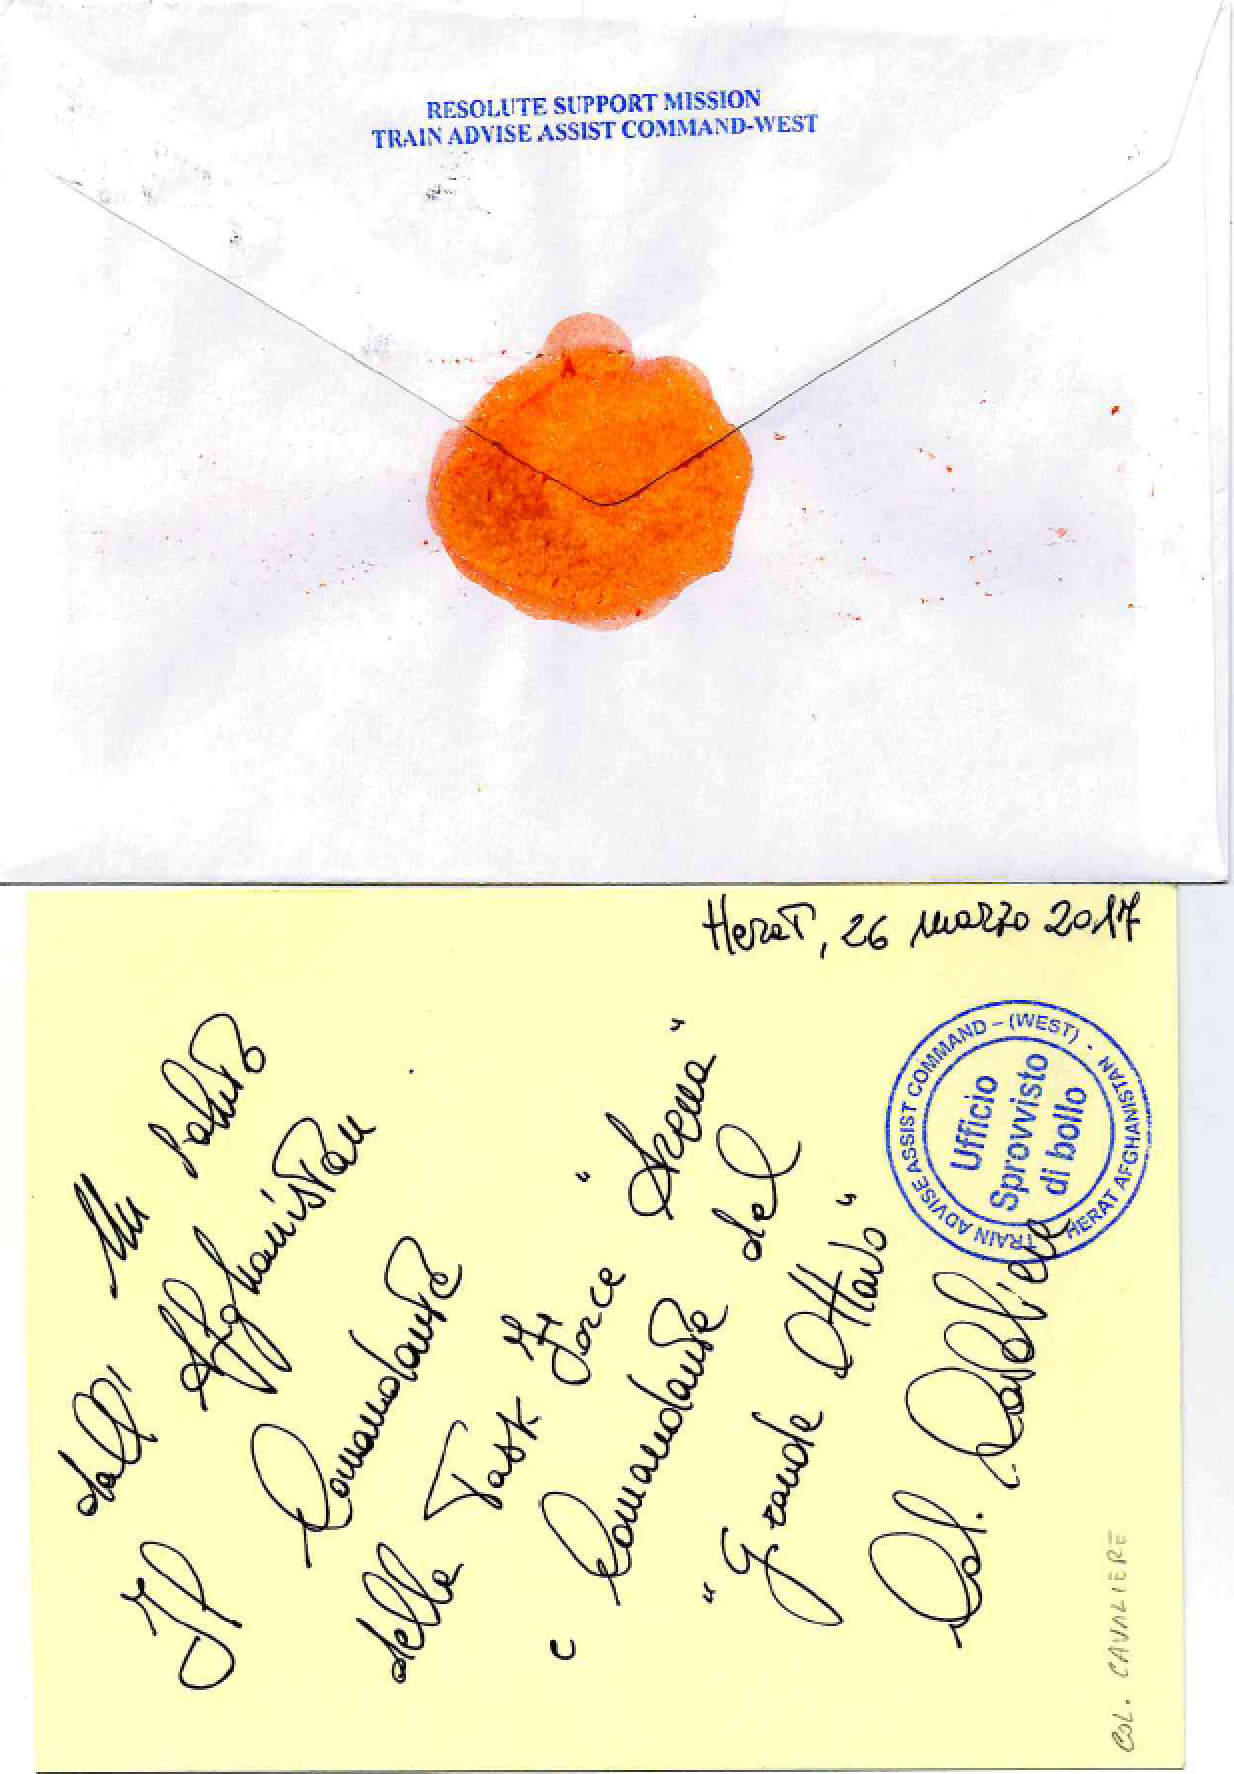 RESOLUTE SUPPORT MISSION
TRAIN ADVISE ASSIST COMMAND-WEST
Herat, 26 marzo 2017
Un saluto
dall' Afghanistan
Il Comandante
della Task Force "Arena"
e Comandante del
"Grande Ottavo"
Col. Cavaliere
TRAIN ADVISE ASSIST COMMAND – (WEST) - HERAT AFGHANISTAN
Ufficio
Sprovvisto
di bollo
COL. CAVALIERE